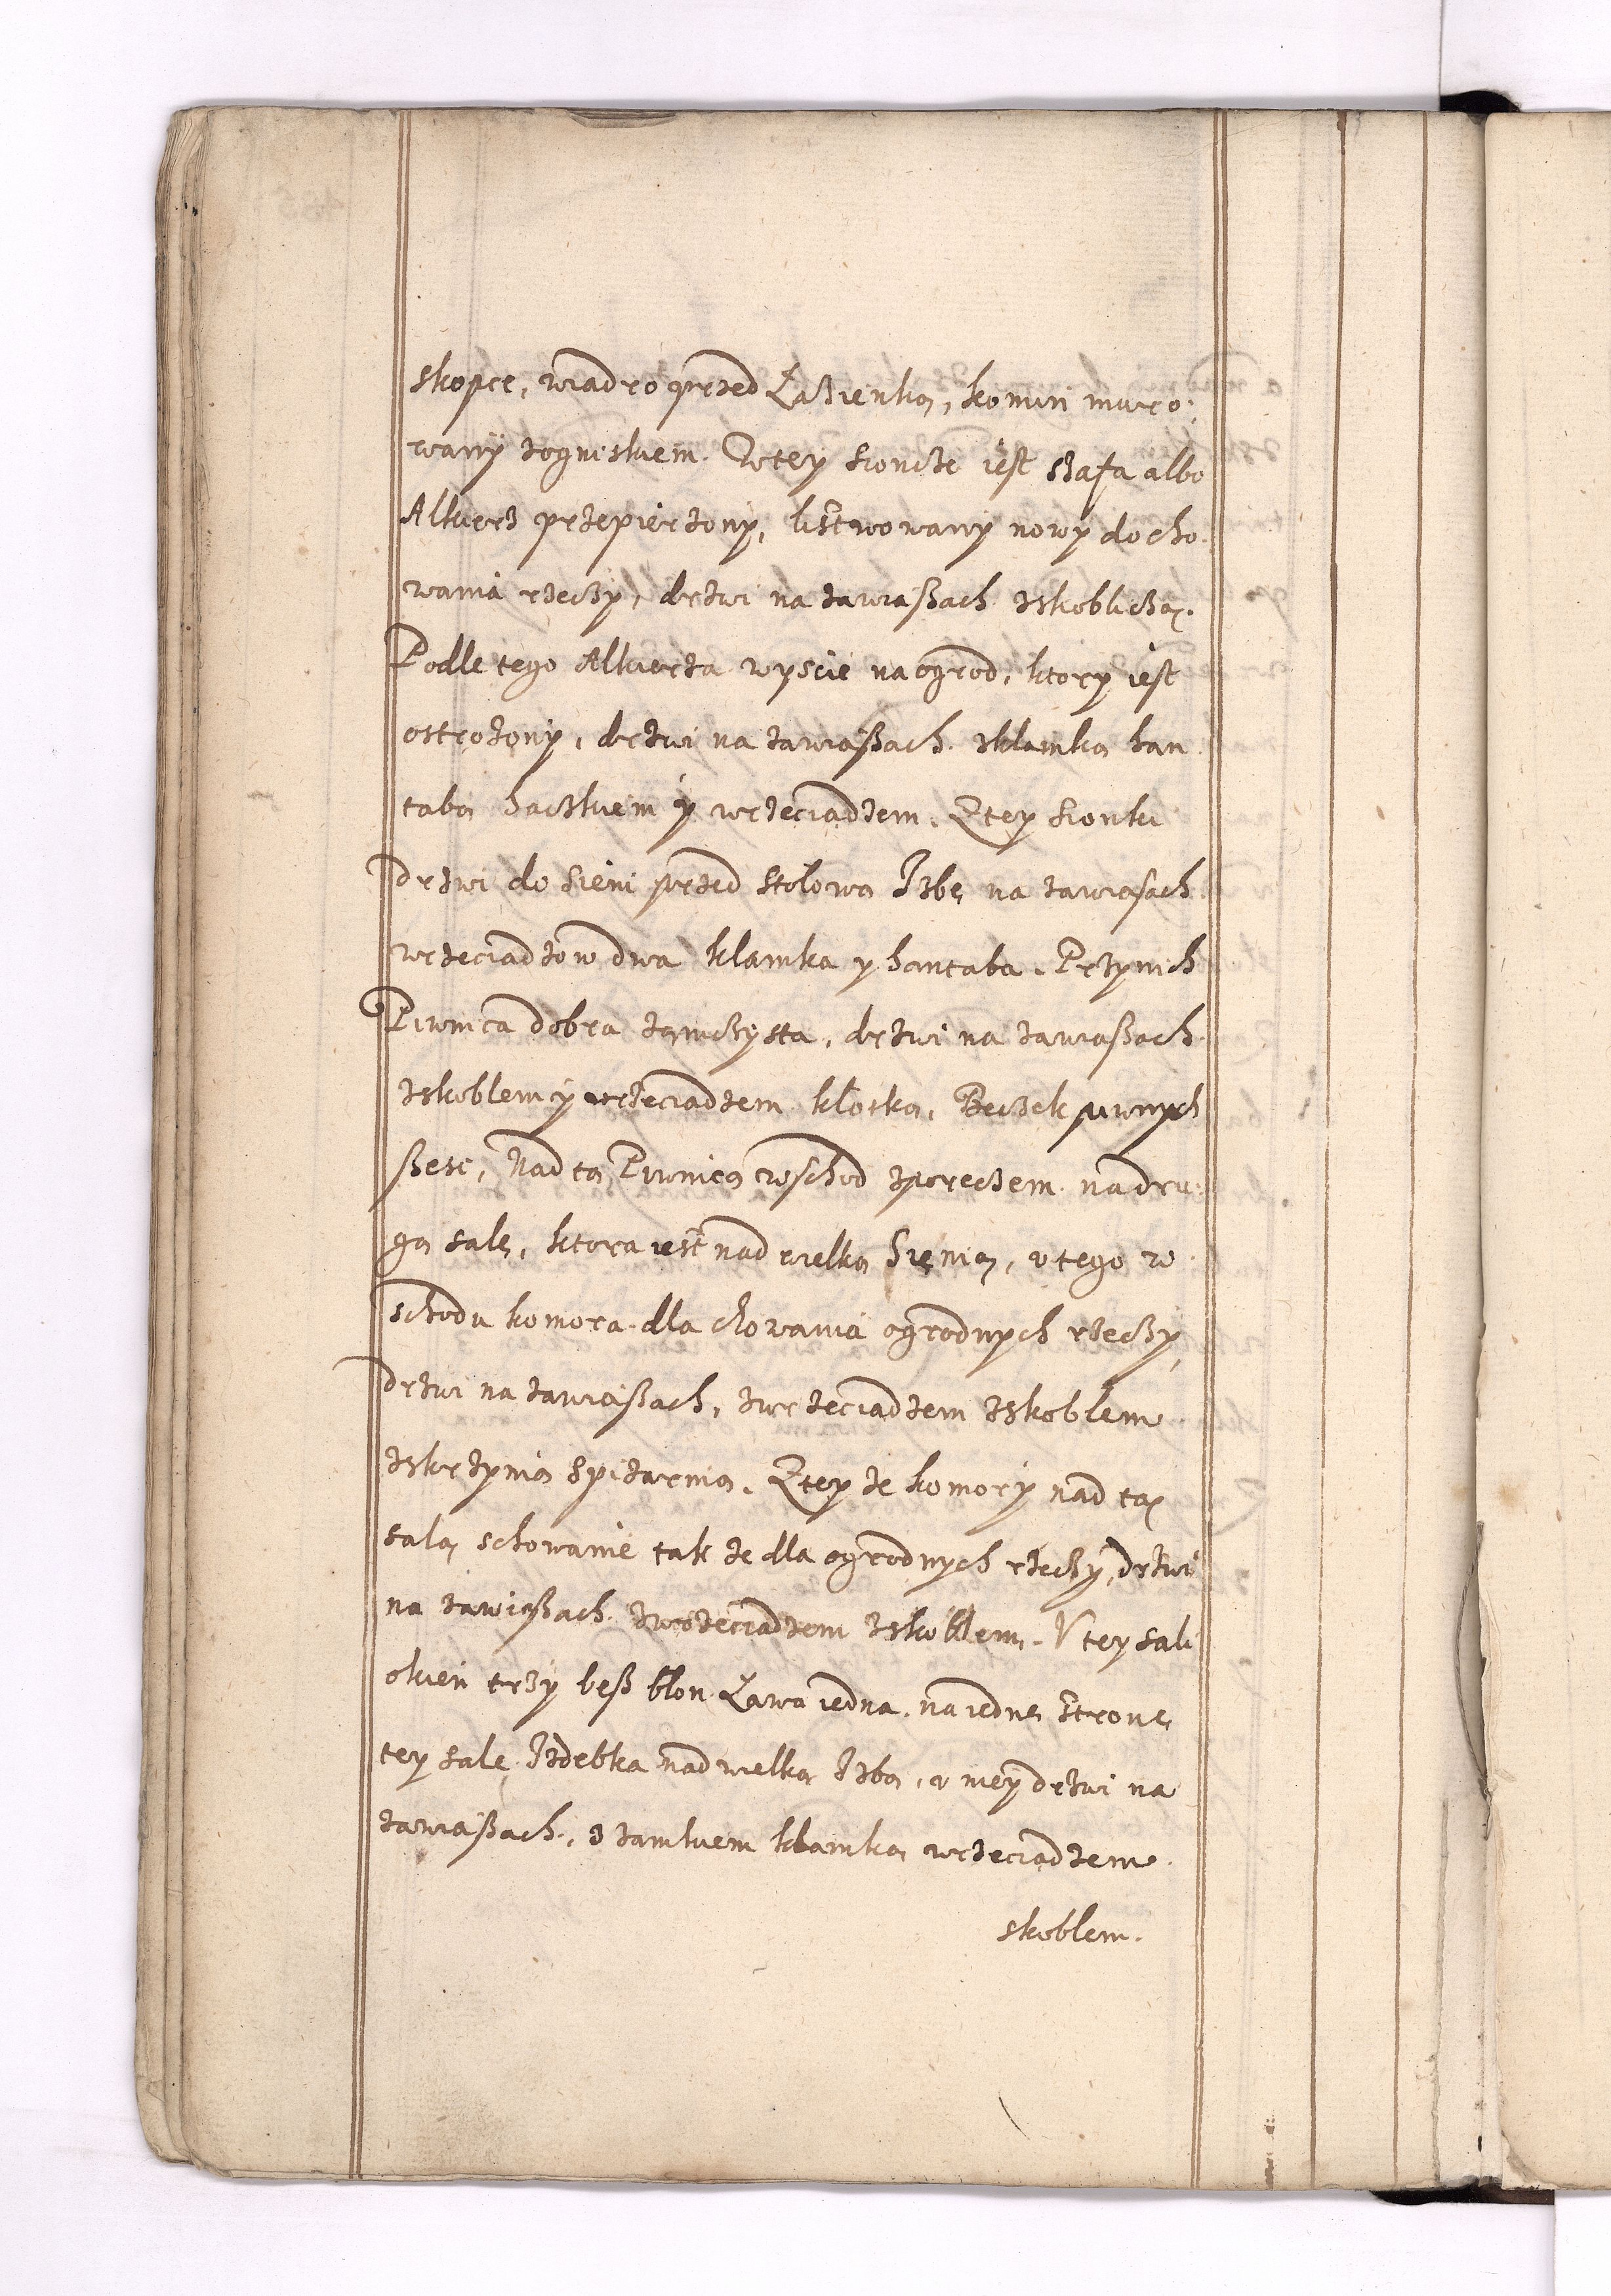 skopce, wiadro przed Łaźienką, komin muro:
wany zogniskiem. Wtey sionże iest szafa albo
Alkierz przepierzony, listwowany nowy docho-
wania rzeczy, drzwi na zawiaßach zskobliczką.
Podle tego Alkierza wyscie na ogrod, ktory iest
ostrożony, drzwi na zawiaßach zklamką han
tabą haczkiem y wrzeciadzem. Ztey sionki
drzwi do sieni przed stołową Izbę na zawiasach
wrzeciadzow dwa klamka y hantaba. Przynich
Piwnica dobra zamczysta, drzwi na zawiaßach
zskoblem y wrzeciadzem klotką, Beczek piwnych
ßesc, Nad tą Piwnicą wschod zporeczem na dru-
gą salę, ktora iest nad wielką Sienią, v tego w
schodu komora dla chowania ogrodnych rzeczy,
drzwi na zawiaßach, zwrzeciadzem zskoblem
zskrzynią Spiżarnią. Zteyże komory nad tą
salą schowanie takze dla ogrodnych rzeczy, drzwi
na zawiaßach zwrzeciadzem zskoblem. V tey sali
okien trzy beß błon Ława iedna. na iednę stronę
tey sale, Izdebka nad wielką Izbą, v niey drzwi na
zawiaßach, z zamkiem klamką wrzeciadzem
skoblem.